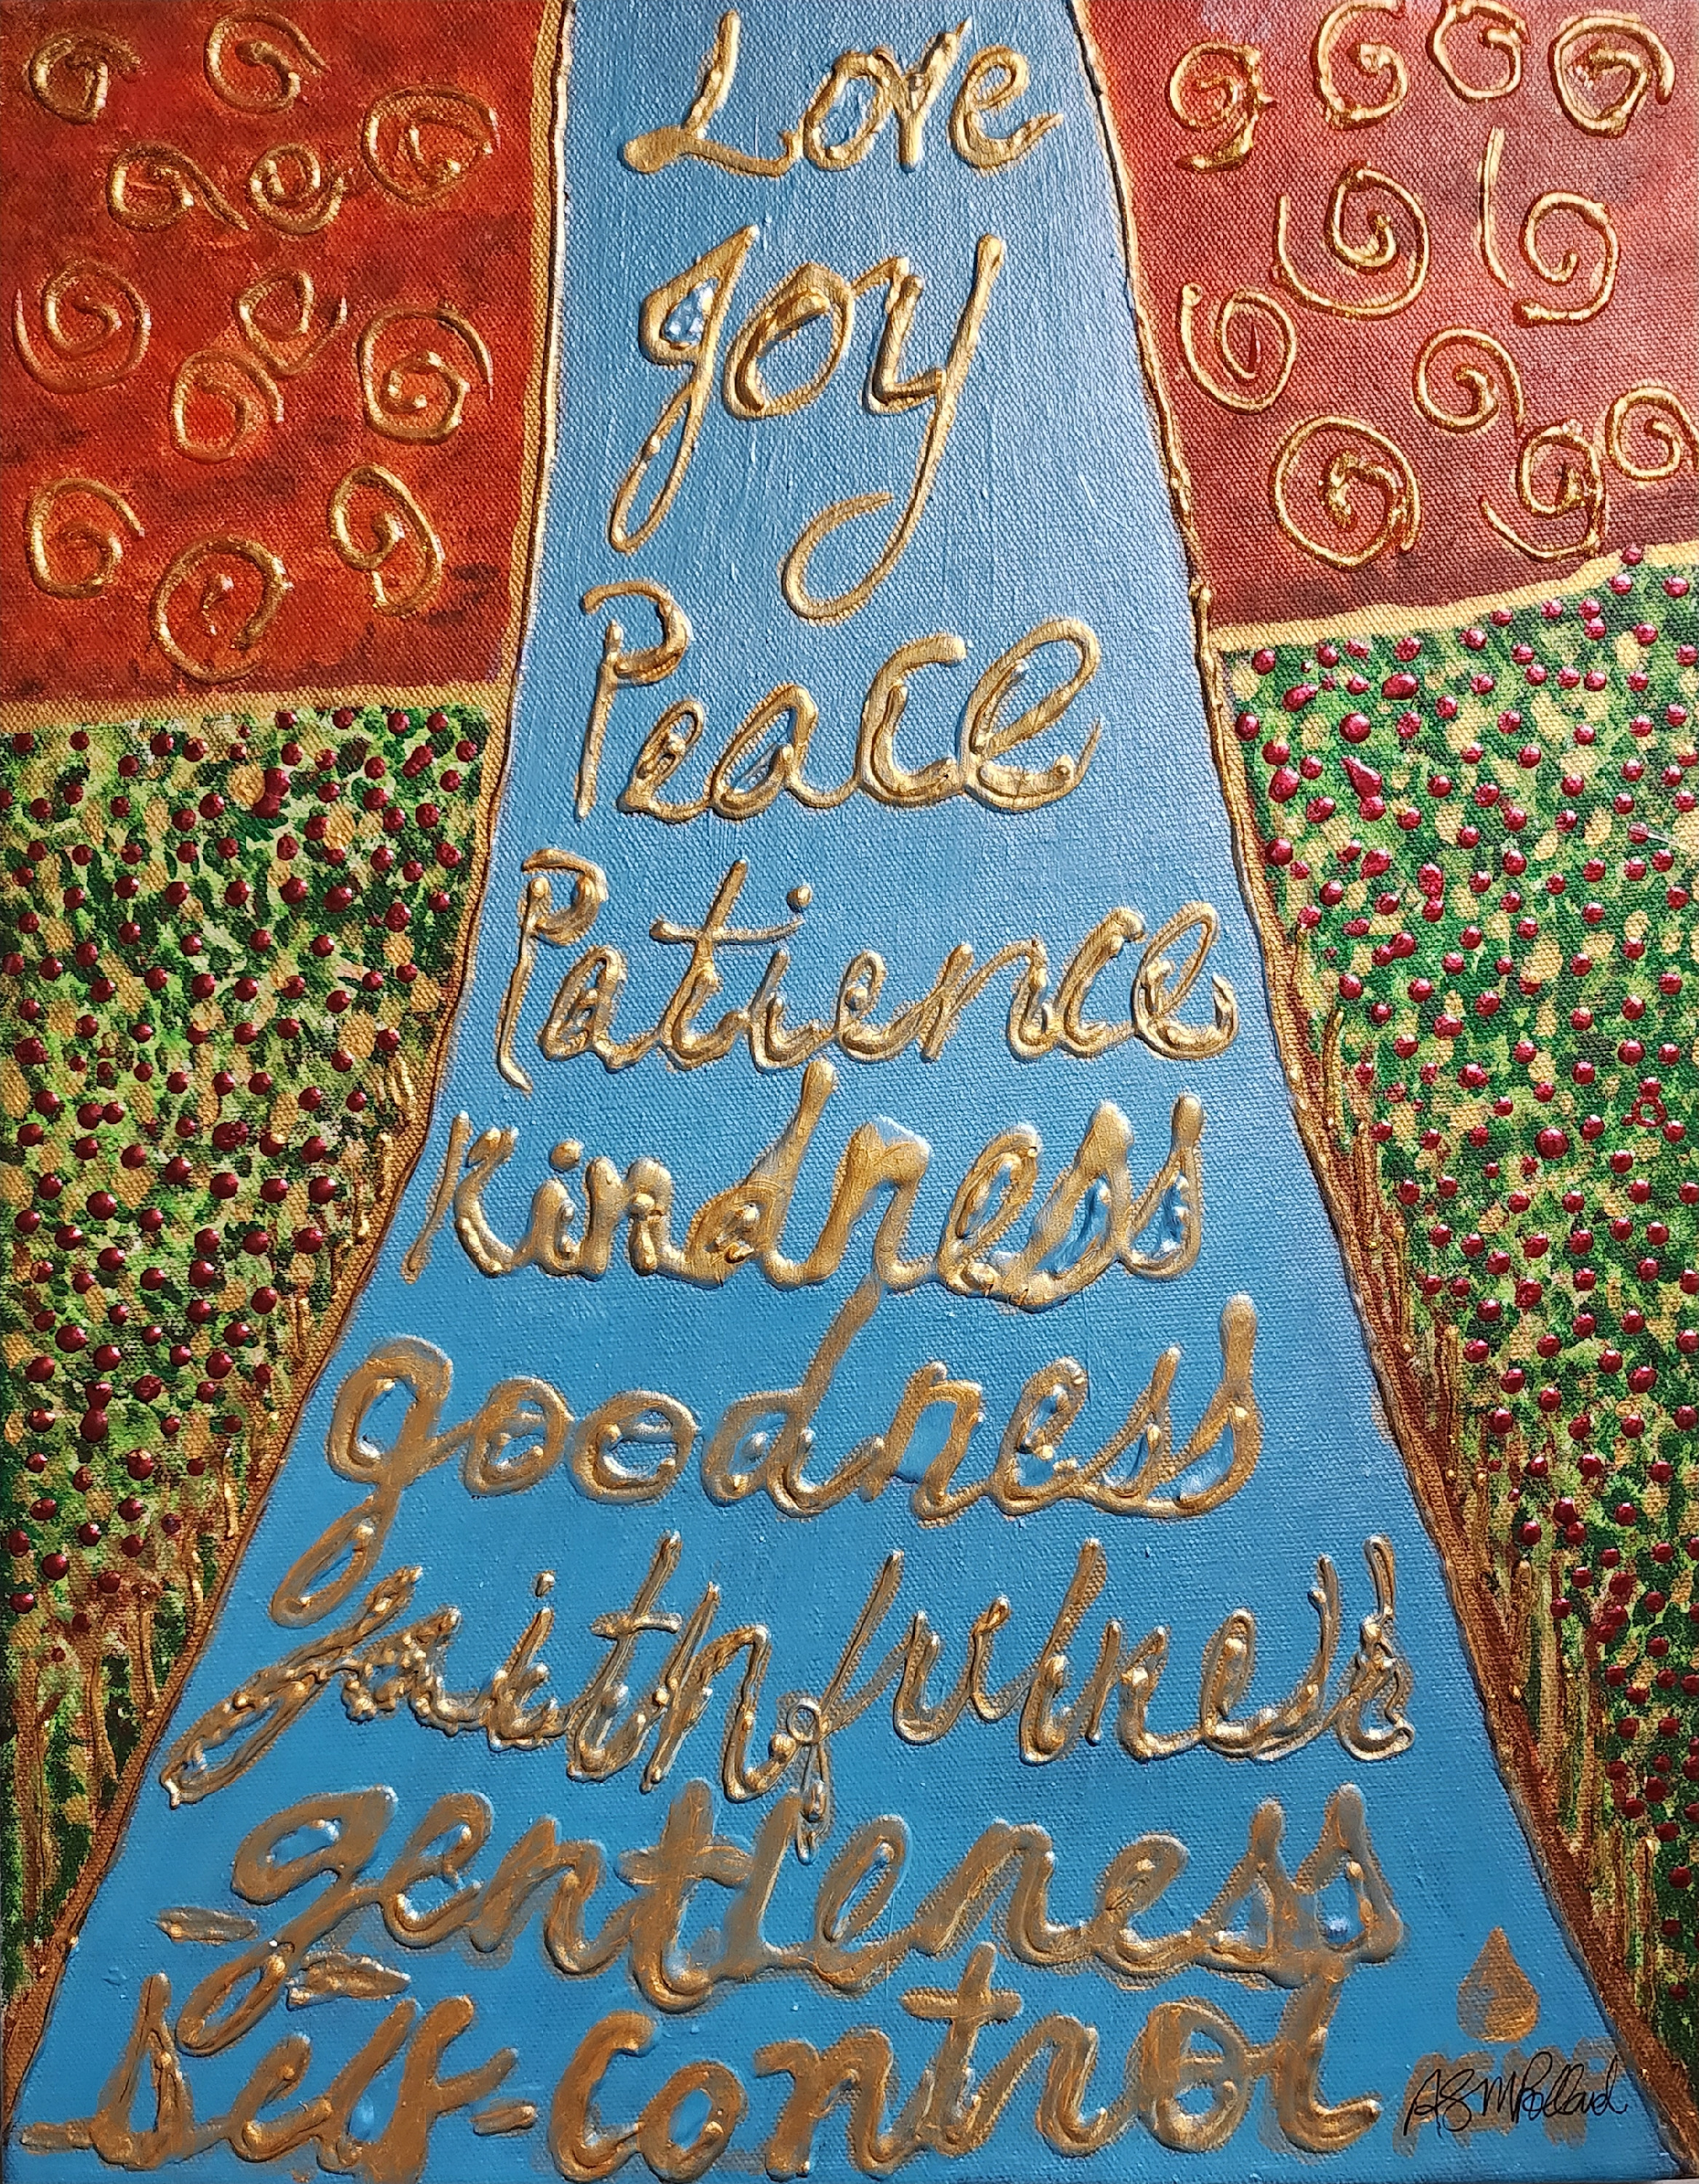 Love
Joy
Peace
Patience
Kindness
goodness
faithfulness
gentleness
Self-control